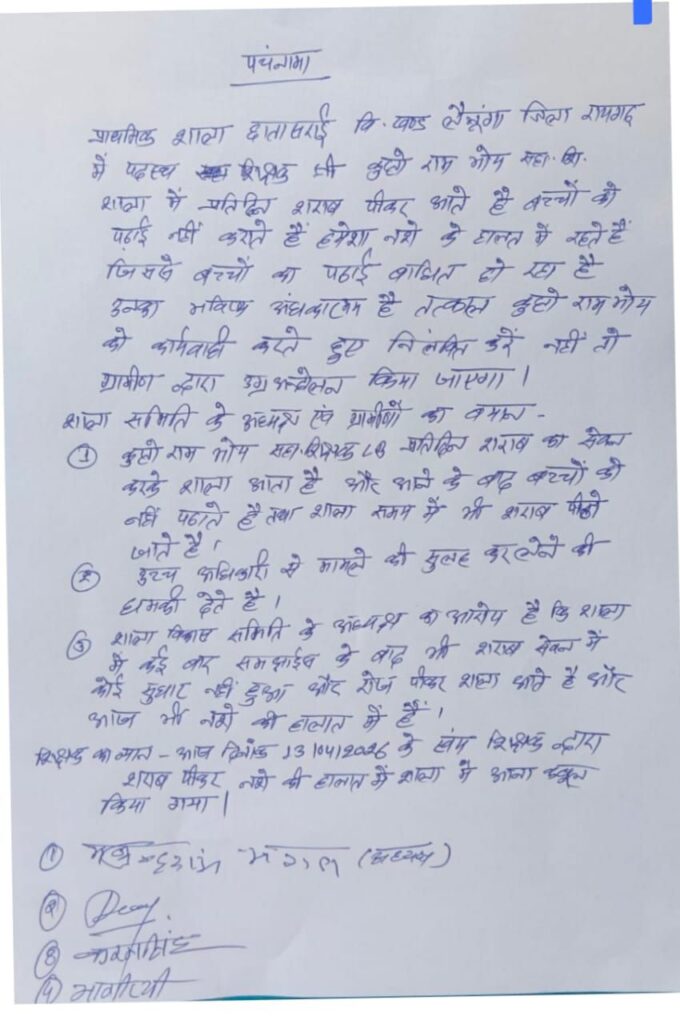 पचंनामा
प्राथमिक शाला छातासराई वि. खण्ड लैलूंगा जिला रायगढ
में पदस्थ शिक्षक श्री राम भोय सहा. शि.
शाला में प्रतिदिन शराब पीकर आते है बच्चों को
पढाई नहीं कराते हैं हमेशा नशे के हालत में रहते हैं
जिससे बच्चों का पढाई बाधित हो रहा है
उनका भविष्य अंधकारमय है तत्काल राम भोय
को कार्यवाही करते हुए निलंबित करें नहीं तो
ग्रामीण द्वारा उग्र आन्दोलन किया जाएगा।
शाला समिति के अध्यक्ष एवं ग्रामीणों का बयान -
① राम भोय सहा. शिक्षक LB प्रतिदिन शराब का सेवन
करके शाला आता है और आने के बाद बच्चों को
नहीं पढाते है तथा शाला समय में भी शराब पीने
जाते है।
② उच्च अधिकारी से मामले को सुलह कर लेने की
धमकी देते है।
③ शाला विकास समिति के अध्यक्ष का आरोप है कि शाला
में कई बार समझाईस के बाद भी शराब सेवन में
कोई सुधार नहीं हुआ और रोज पीकर शाला आते है और
आज भी नशे की हालात में हैं।
शिक्षक का बयान - आज दिनांक 13/04/2026 के स्वंय शिक्षक द्वारा
शराब पीकर नशे की हालात में शाला में आना कबूल
किया गया।
① (अध्यक्ष)
②
③
④